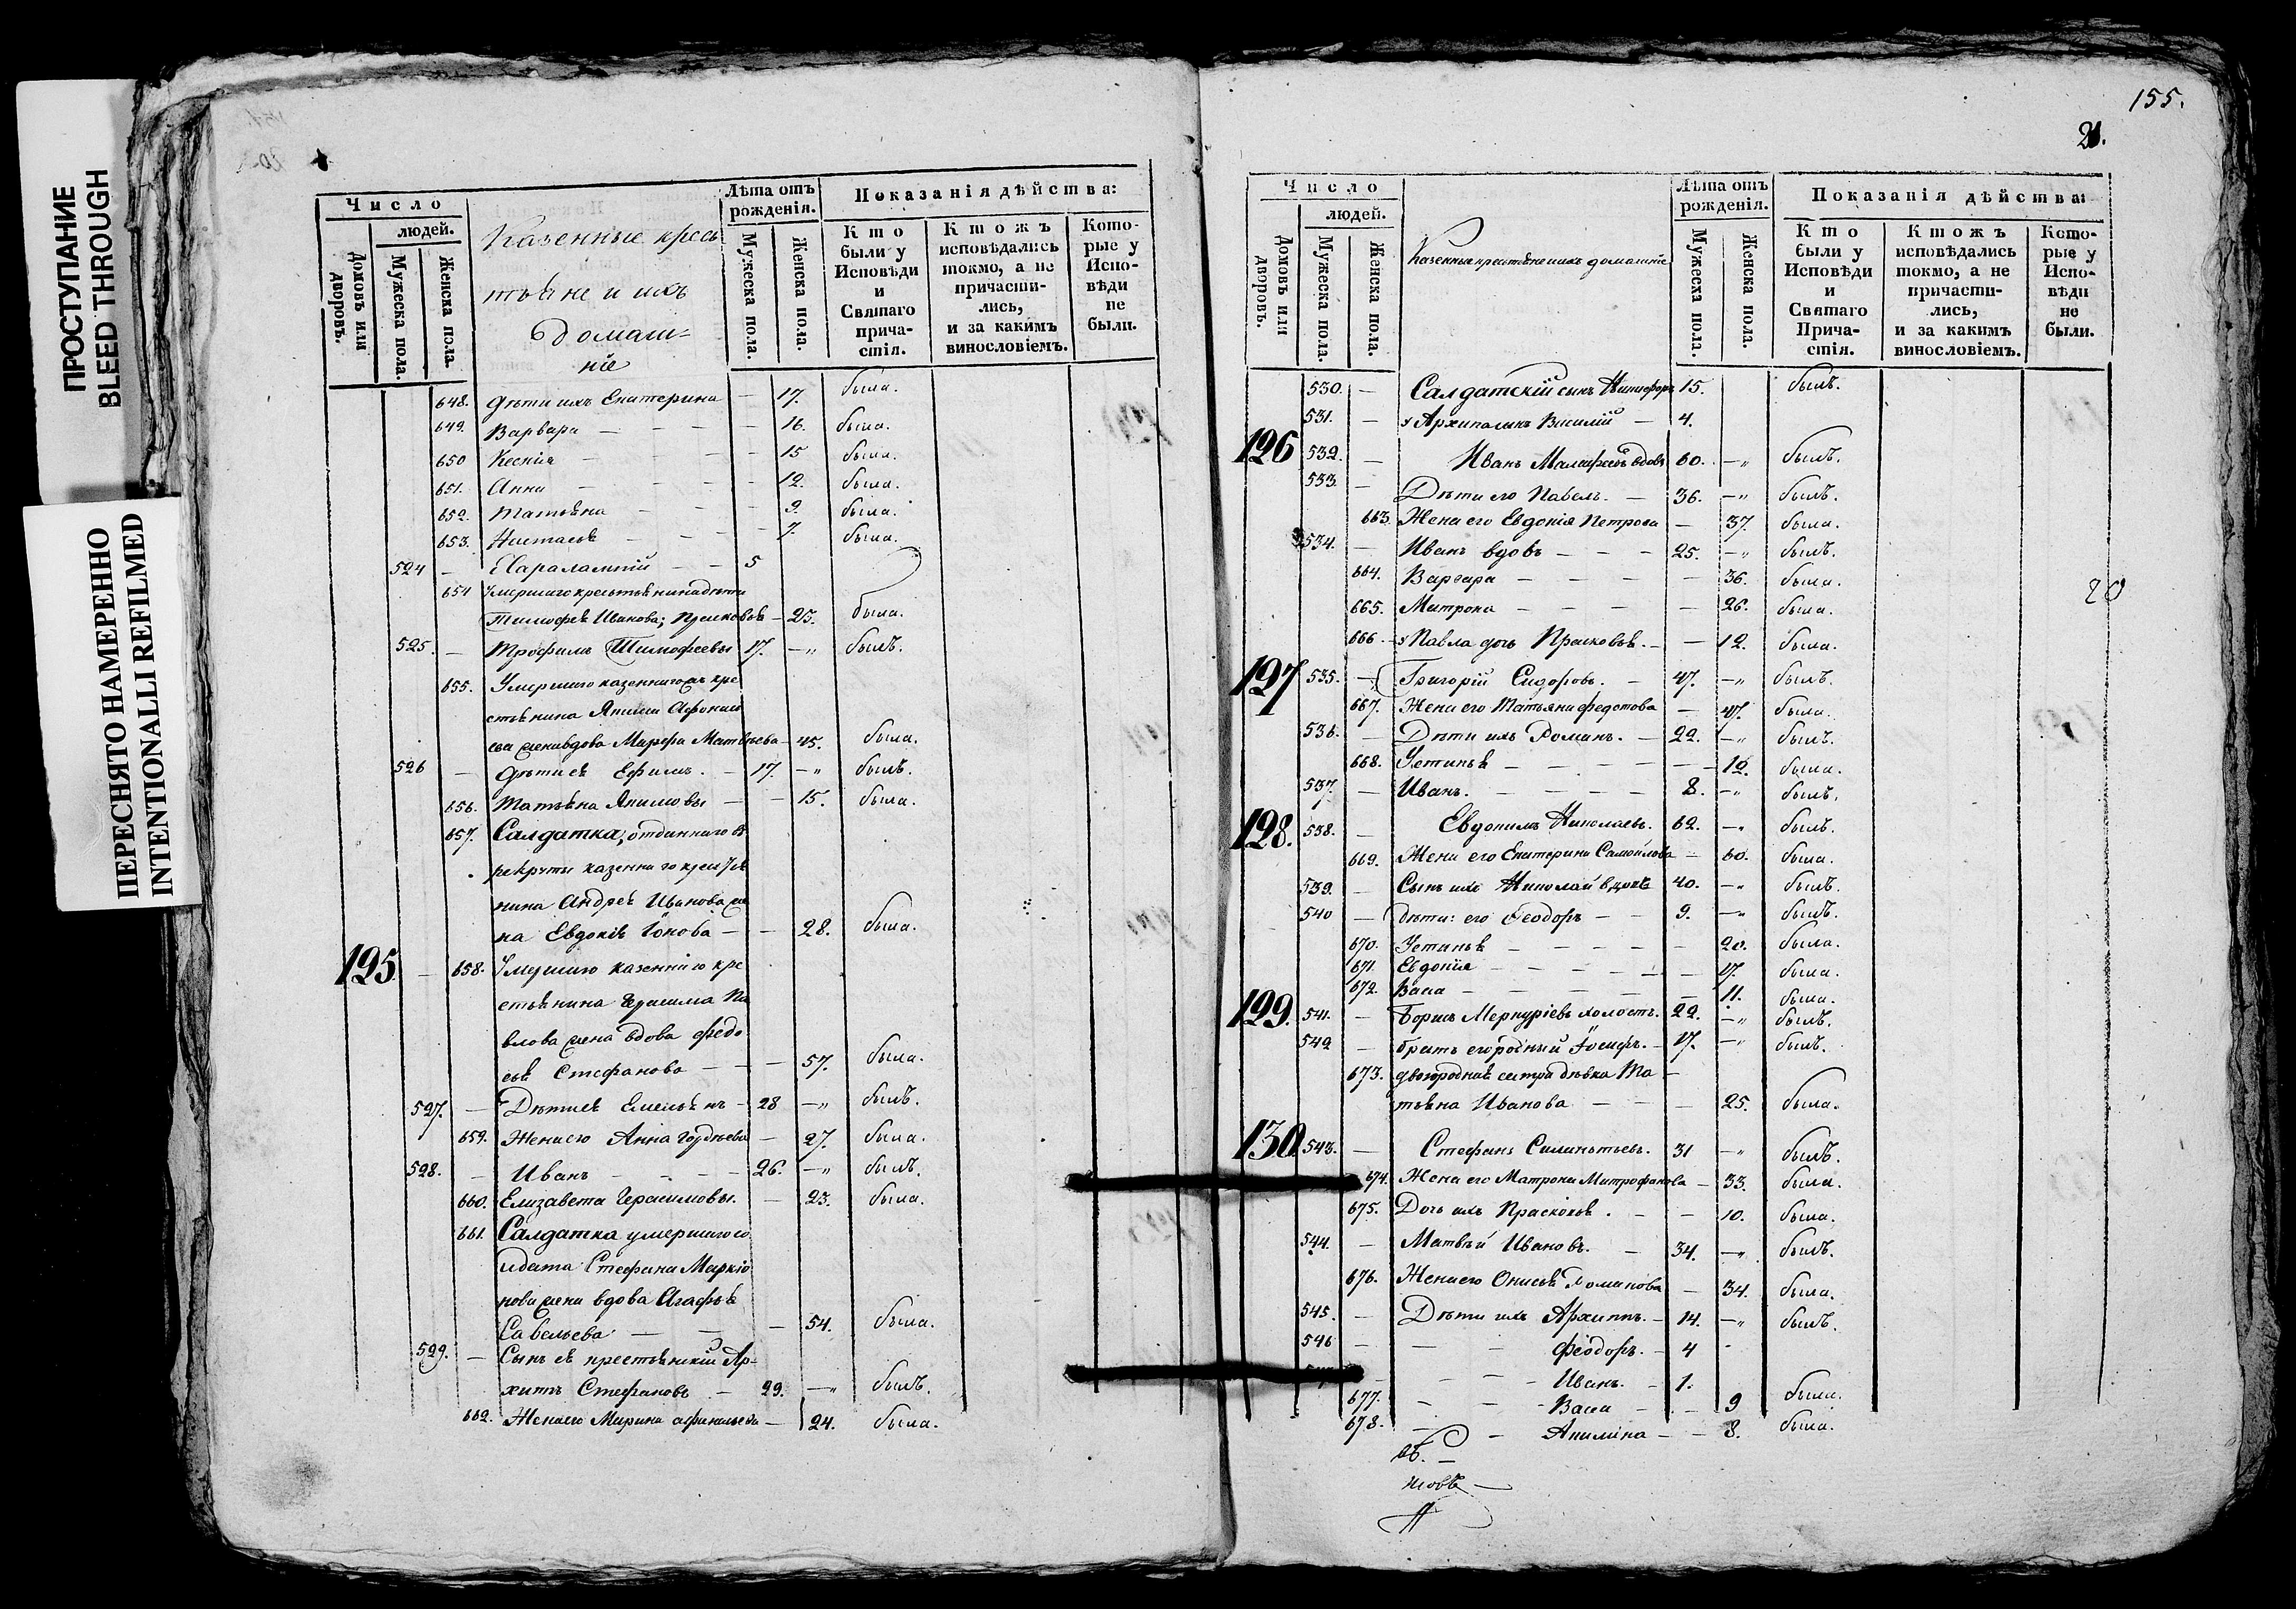 ПРОСТУПАНИЕ
BLEED THROUGH
ПЕРЕСНЯТО НАМЕРЕННО
INTENTIONALLI REFILMED
Число
людей.
Домовъ или дворовъ.
Мужеска пола.
Женска пола.
Казенные кресь
тьяне и ихъ
домаш=
ніе
Лѣта отъ рожденія.
Мужеска пола.
Женска пола.
Показанія дѣйства:
Кто были у Исповѣди и Святаго причастія.
Ктожъ исповѣдались токмо, а не причастились, и за какимъ винословіемъ.
Которые у Исповѣди не были.
648. дѣти ихъ Екатерина — 17. была.
649. Варвара — — — 16. была.
650 Ксенія — — — 15 была.
651. Анна — — — 12. была.
652. Татьяна — — — 9. была.
653. Настасья — — — 7. была.
524 — Харалампій — — 5
654 Умершаго крестьянина дѣти
Тимофея Иванова; Прасковья — 25. была.
525. — Трофимъ Тимофеевы 17. —„ былъ.
655. Умершаго казеннаго кре
стьянина Якима Афонась
ева жена вдова Марфа Матвѣева — 45. была.
526 — дѣти ея Ефимъ. — 17. —„ былъ.
656. Татьяна Якимовы — — 15. была.
657. Салдатка, отданнаго въ
рекруты казеннаго крестья
нина Андрея Иванова же
на Евдокія Іонова — — 28. была.
125. — 658. Умершаго казеннаго кре
стьянина Герасима Па
влова жена вдова Федо
сья Стефанова — — — 57. была.
527. — Дѣти ея Емельянъ — 28 —„ былъ.
659. Жена его Анна Гордѣева — 27. была.
528. — Иванъ — — — 26. —„ былъ.
660. Елизавета Герасимовы. — 23. была.
661. Салдатка умершаго со
лдата Стефана Маркіо
нова жена вдова Агафья
Савельева — — — 54. была.
529. — Сынъ ея крестьянскій Ар-
хипъ Стефановъ — 29. —„ былъ.
662. Жена его Марина — 24. была.
155.
21.
Число
людей.
Домовъ или дворовъ.
Мужеска пола.
Женска пола.
Казенные крестьяне ихъ домашніе
Лѣта отъ рожденія.
Мужеска пола.
Женска пола.
Показанія дѣйства:
Кто были у Исповѣди и Святаго Причастія.
Ктожъ исповѣдались токмо, а не причастились, и за какимъ винословіемъ.
Которые у Исповѣди не были.
530. — Салдатскій сынъ Никифоръ 15. былъ.
531. — у Архипа сынъ Василій — 4.
126 532. — Иванъ вдовъ 60. —„ былъ.
533. — Дѣти его Павелъ. — 36. —„ былъ.
663. Жена его Евдокія Петрова — 37. была.
534. — Иванъ вдовъ — — — 25. —„ былъ.
664. Варвара — — — — 36. была.
665. Матрона — — — — 26. была.
666. — у Павла дочь Прасковья. — — 12. была.
20
127 535. — Григорій Сидоровъ. — 47. —„ былъ.
667. Жена его Татьяна Федотова — 47. была.
536. — Дѣти ихъ Романъ. — 22. —„ былъ.
668. Устинья — — — — 12. была.
537. — Иванъ. — — — — 8. —„ былъ.
128. 538. — Евдокимъ Николаевъ. 62. —„ былъ.
669. Жена его Екатерина Самойлова — 60. была.
539. — Сынъ ихъ Николай вдовъ 40. —„ былъ.
540 — дѣти: его Феодоръ — — 9. —„ былъ.
670. Устинья — — — — 20. была.
671. Евдокія — — — — 17. была.
672. Васа — — — — 11. была.
129. 541. — Борисъ Меркуріевъ холостъ. 22. —„ былъ.
542 — братъ его родный Іосифъ. — 17. —„ былъ.
673. двоюродная сестра дѣвка Та —
тьяна Иванова — — — 25. была.
130. 543. — Стефанъ Силантьевъ. 31 —„ былъ.
674. Жена его Матрона Митрофанова — 33. была.
675. Дочь ихъ Прасковья. — — 10. была.
544. — Матвѣй Ивановъ. — 34. —„ былъ.
676. Жена его Онисья Романова — 34. была.
545. — Дѣти ихъ Архиппъ. — 14. —„ былъ.
546 — — — Феодоръ. — 4
— — — Иванъ. — 1.
677. — — Васа — — 9 была.
678. — — Акилина — — 8. была.